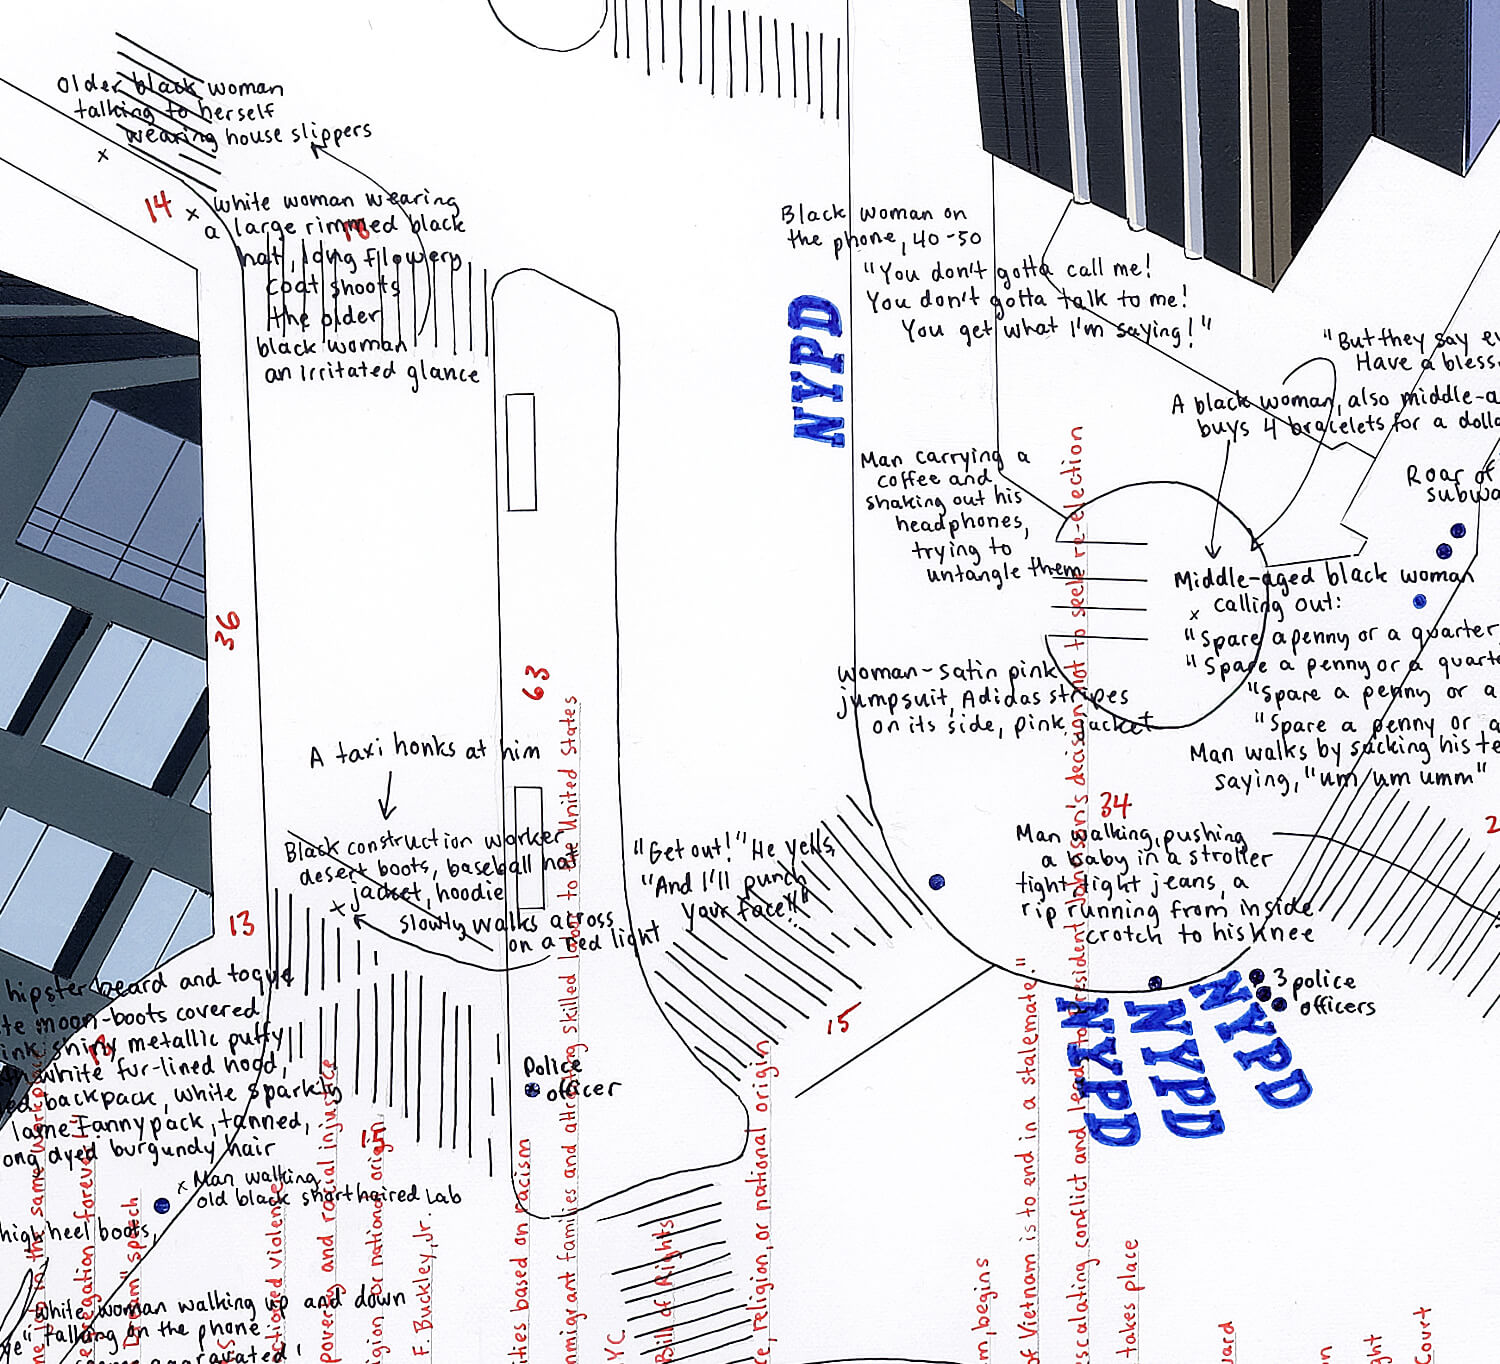 Older black woman
talking to herself
wearing house slippers
x
14
x white woman wearing
a large rimmed black
hat, long flowery
coat shoots
the older
black woman
an irritated glance
Black woman on
the phone, 40-50
"You don't gotta call me!
You don't gotta talk to me!
You get what I'm saying!"
NYPD
"But they say
Have a
A black woman, also middle-
buys 4 bracelets for a
Roar of
Man carrying a
coffee and
shaking out his
headphones,
trying to
untangle them
Middle-aged black woman
x calling out:
"Spare a penny or a quarter
"Spare a penny or a
"Spare a penny or a
"Spare a penny or
Man walks by sucking his
saying, "um um umm"
woman-satin pink
jumpsuit, Adidas stripes
on its side, pink jacket
36
63
A taxi honks at him
Black construction worker
desert boots, baseball hat
jacket, hoodie
x
slowly walks across
on a red light
"Get out!" He yells,
"And I'll punch
your face!!"
34
Man walking, pushing
a baby in a stroller
tight tight jeans, a
rip running from inside
crotch to his knee
2
13
15
3 police
officers
NYPD
NYPD
NYPD
hipster beard and toque
moon-boots covered
shiny metallic puffy
white fur-lined hood,
backpack, white sparkly
lame Fannypack, tanned,
dyed burgundy hair
Police
officer
15
x Man walking
old black shorthaired Lab
high heel boots,
white woman walking up and down
talking on the phone
in the same workplace
segregation forever
Dream" speech
violence
poverty and racial injustice
religion or national origin
F. Buckley, Jr.
based on racism
immigrant families and attracting skilled labor to the United States
YC
Bill of Rights
religion, or national origin
begins
of Vietnam is to end in a stalemate."
escalating conflict and leads to President Johnson's decision not to seek re-election
takes place
Court